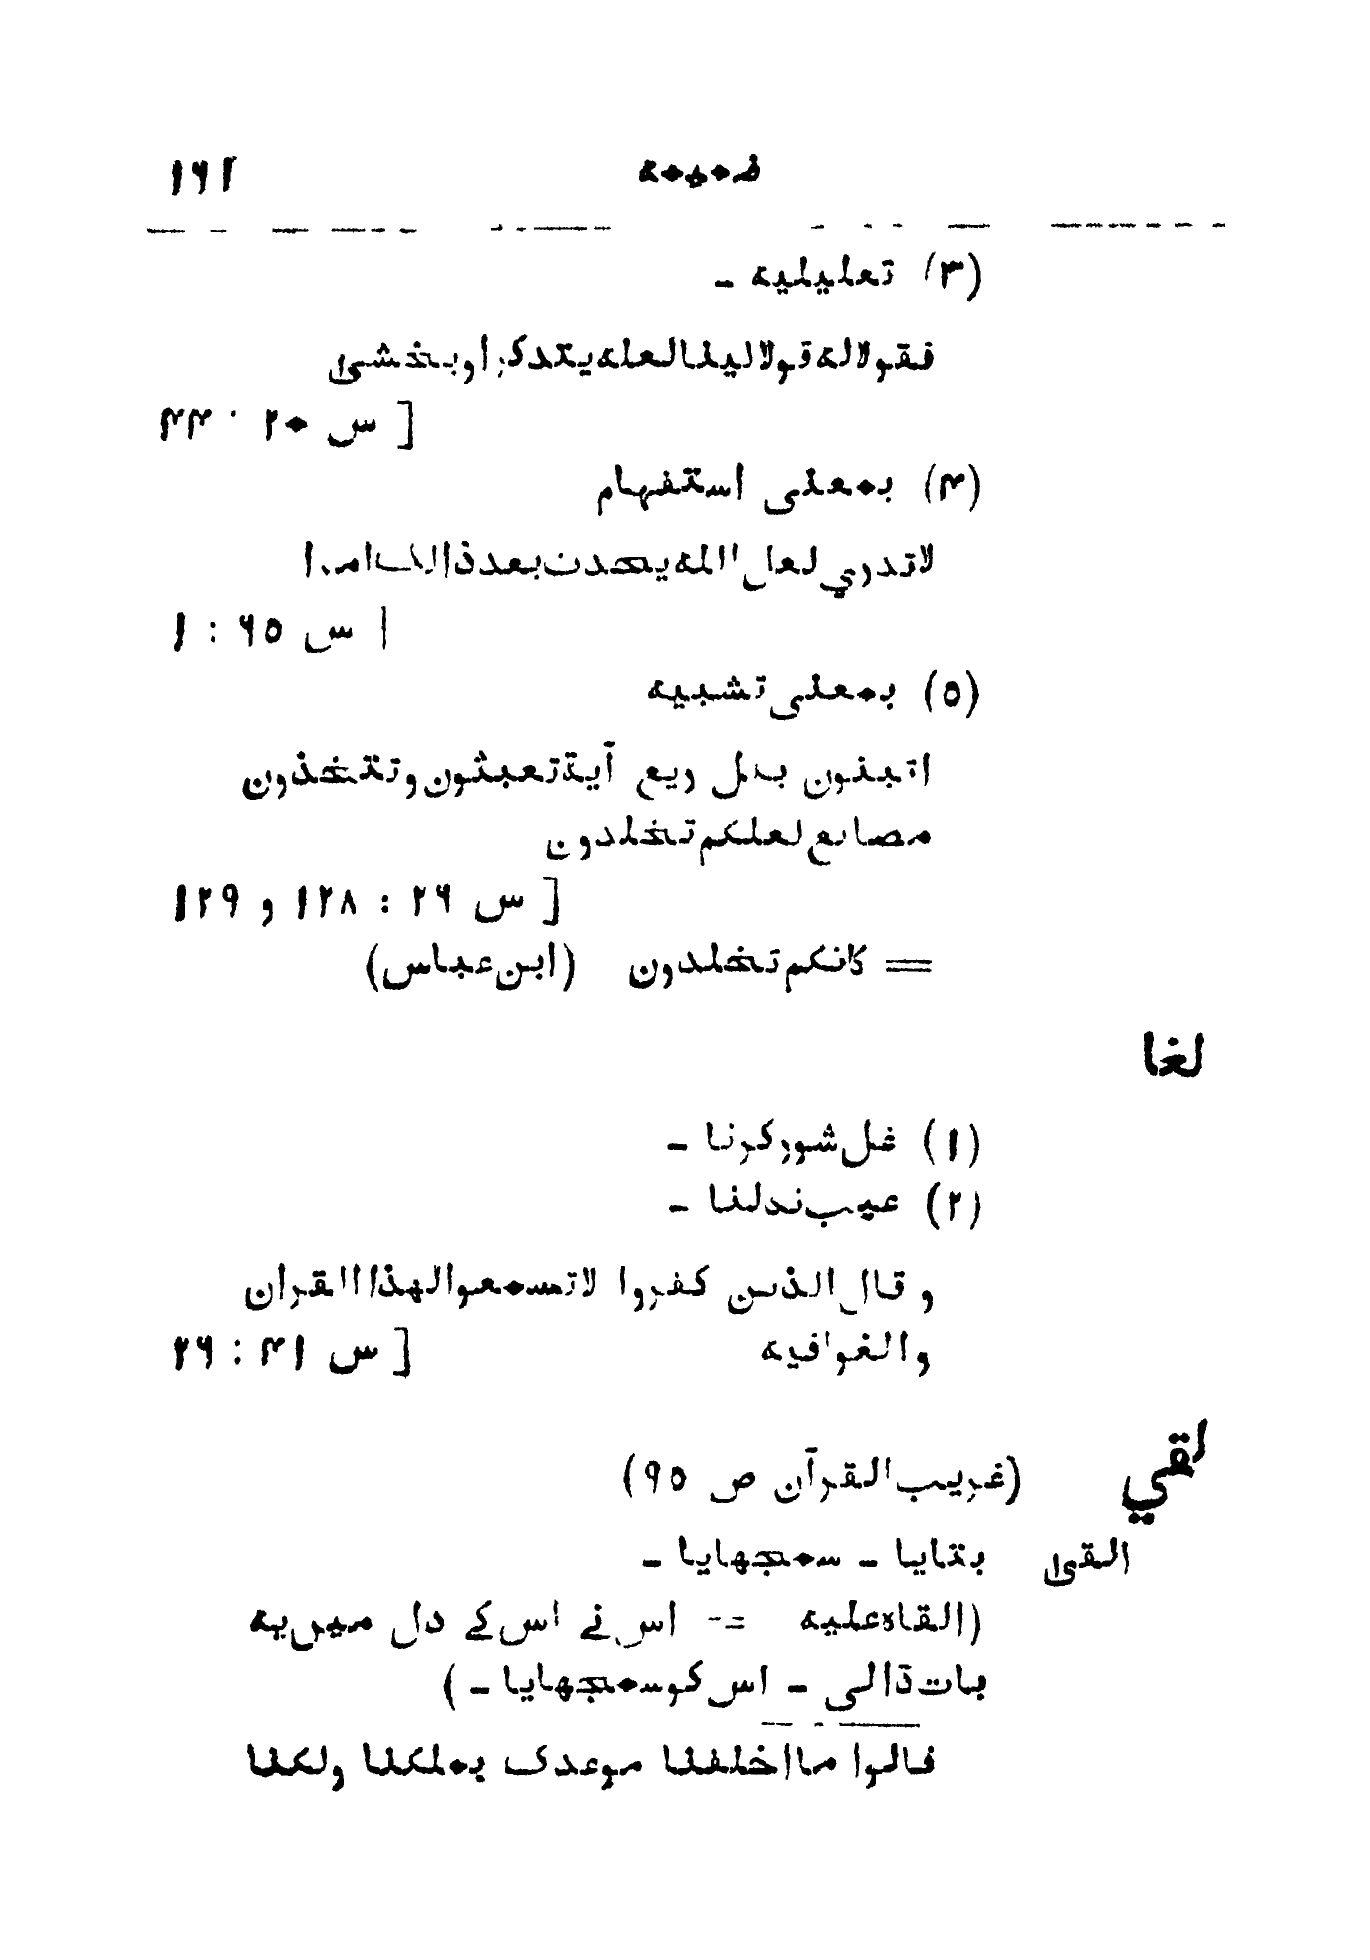 ضمیمه ۱۶۱
(۳) تعلیلیه -
فقولا له قولا لینا لعله یتذکر او یخشیٰ
[ س ۲۰ : ۴۴
(۴) بمعنی استفهام
لا تدري لعل الله یحدث بعد ذالک امرا
[ س ۶۵ : ۱
(۵) بمعنی تشبیه
اتبنون بکل ریع آیة تعبثون و تتخذون
مصانع لعلکم تخلدون
[ س ۲۶ : ۱۲۸ و ۱۲۹
= کانکم تخلدون (ابن عباس)
لغا
(۱) غل شور کرنا -
(۲) عیب ندلنا -
و قال الذین کفروا لا تسمعوا لهذا القران
و الغوا فیه [ س ۴۱ : ۲۶
لقي
(غریب القرآن ص ۹۵)
القیٰ بتایا - سمجهایا -
(القاه علیه = اس نے اس کے دل میں یه
بات ڈالی - اس کو سمجهایا - )
قالوا ما اخلفنا موعدک بملکنا ولکنا